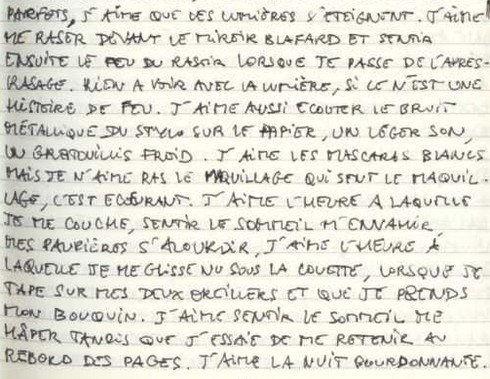 PARFOIS, J'AIME QUE LES LUMIÈRES S'ÉTEIGNENT. J'AIME
ME RASER DEVANT LE MIROIR BLAFARD ET SENTIR
ENSUITE LE FEU DU RASOIR LORSQUE JE PASSE DE L'APRÈS-
RASAGE. RIEN A VOIR AVEC LA LUMIÈRE, SI CE N'EST UNE
HISTOIRE DE FEU. J'AIME AUSSI ECOUTER LE BRUIT
MÉTALLIQUE DU STYLO SUR LE PAPIER, UN LÉGER SON,
UN GRATOUILLIS FROID. J'AIME LES MASCARAS BLANCS
MAIS JE N'AIME PAS LE MAQUILLAGE QUI SENT LE MAQUIL-
LAGE, C'EST ECŒURANT. J'AIME L'HEURE A LAQUELLE
JE ME COUCHE, SENTIR LE SOMMEIL M'ENVAHIR,
MES PAUPIÈRES S'ALOURDIR, J'AIME L'HEURE À
LAQUELLE JE ME GLISSE NU SOUS LA COUETTE, LORSQUE JE
TAPE SUR MES DEUX OREILLERS ET QUE JE PRENDS
MON BOUQUIN. J'AIME SENTIR LE SOMMEIL ME
HÂPER TANDIS QUE J'ESSAIE DE ME RETENIR AU
REBORD DES PAGES. J'AIME LA NUIT BOURDONNANTE.